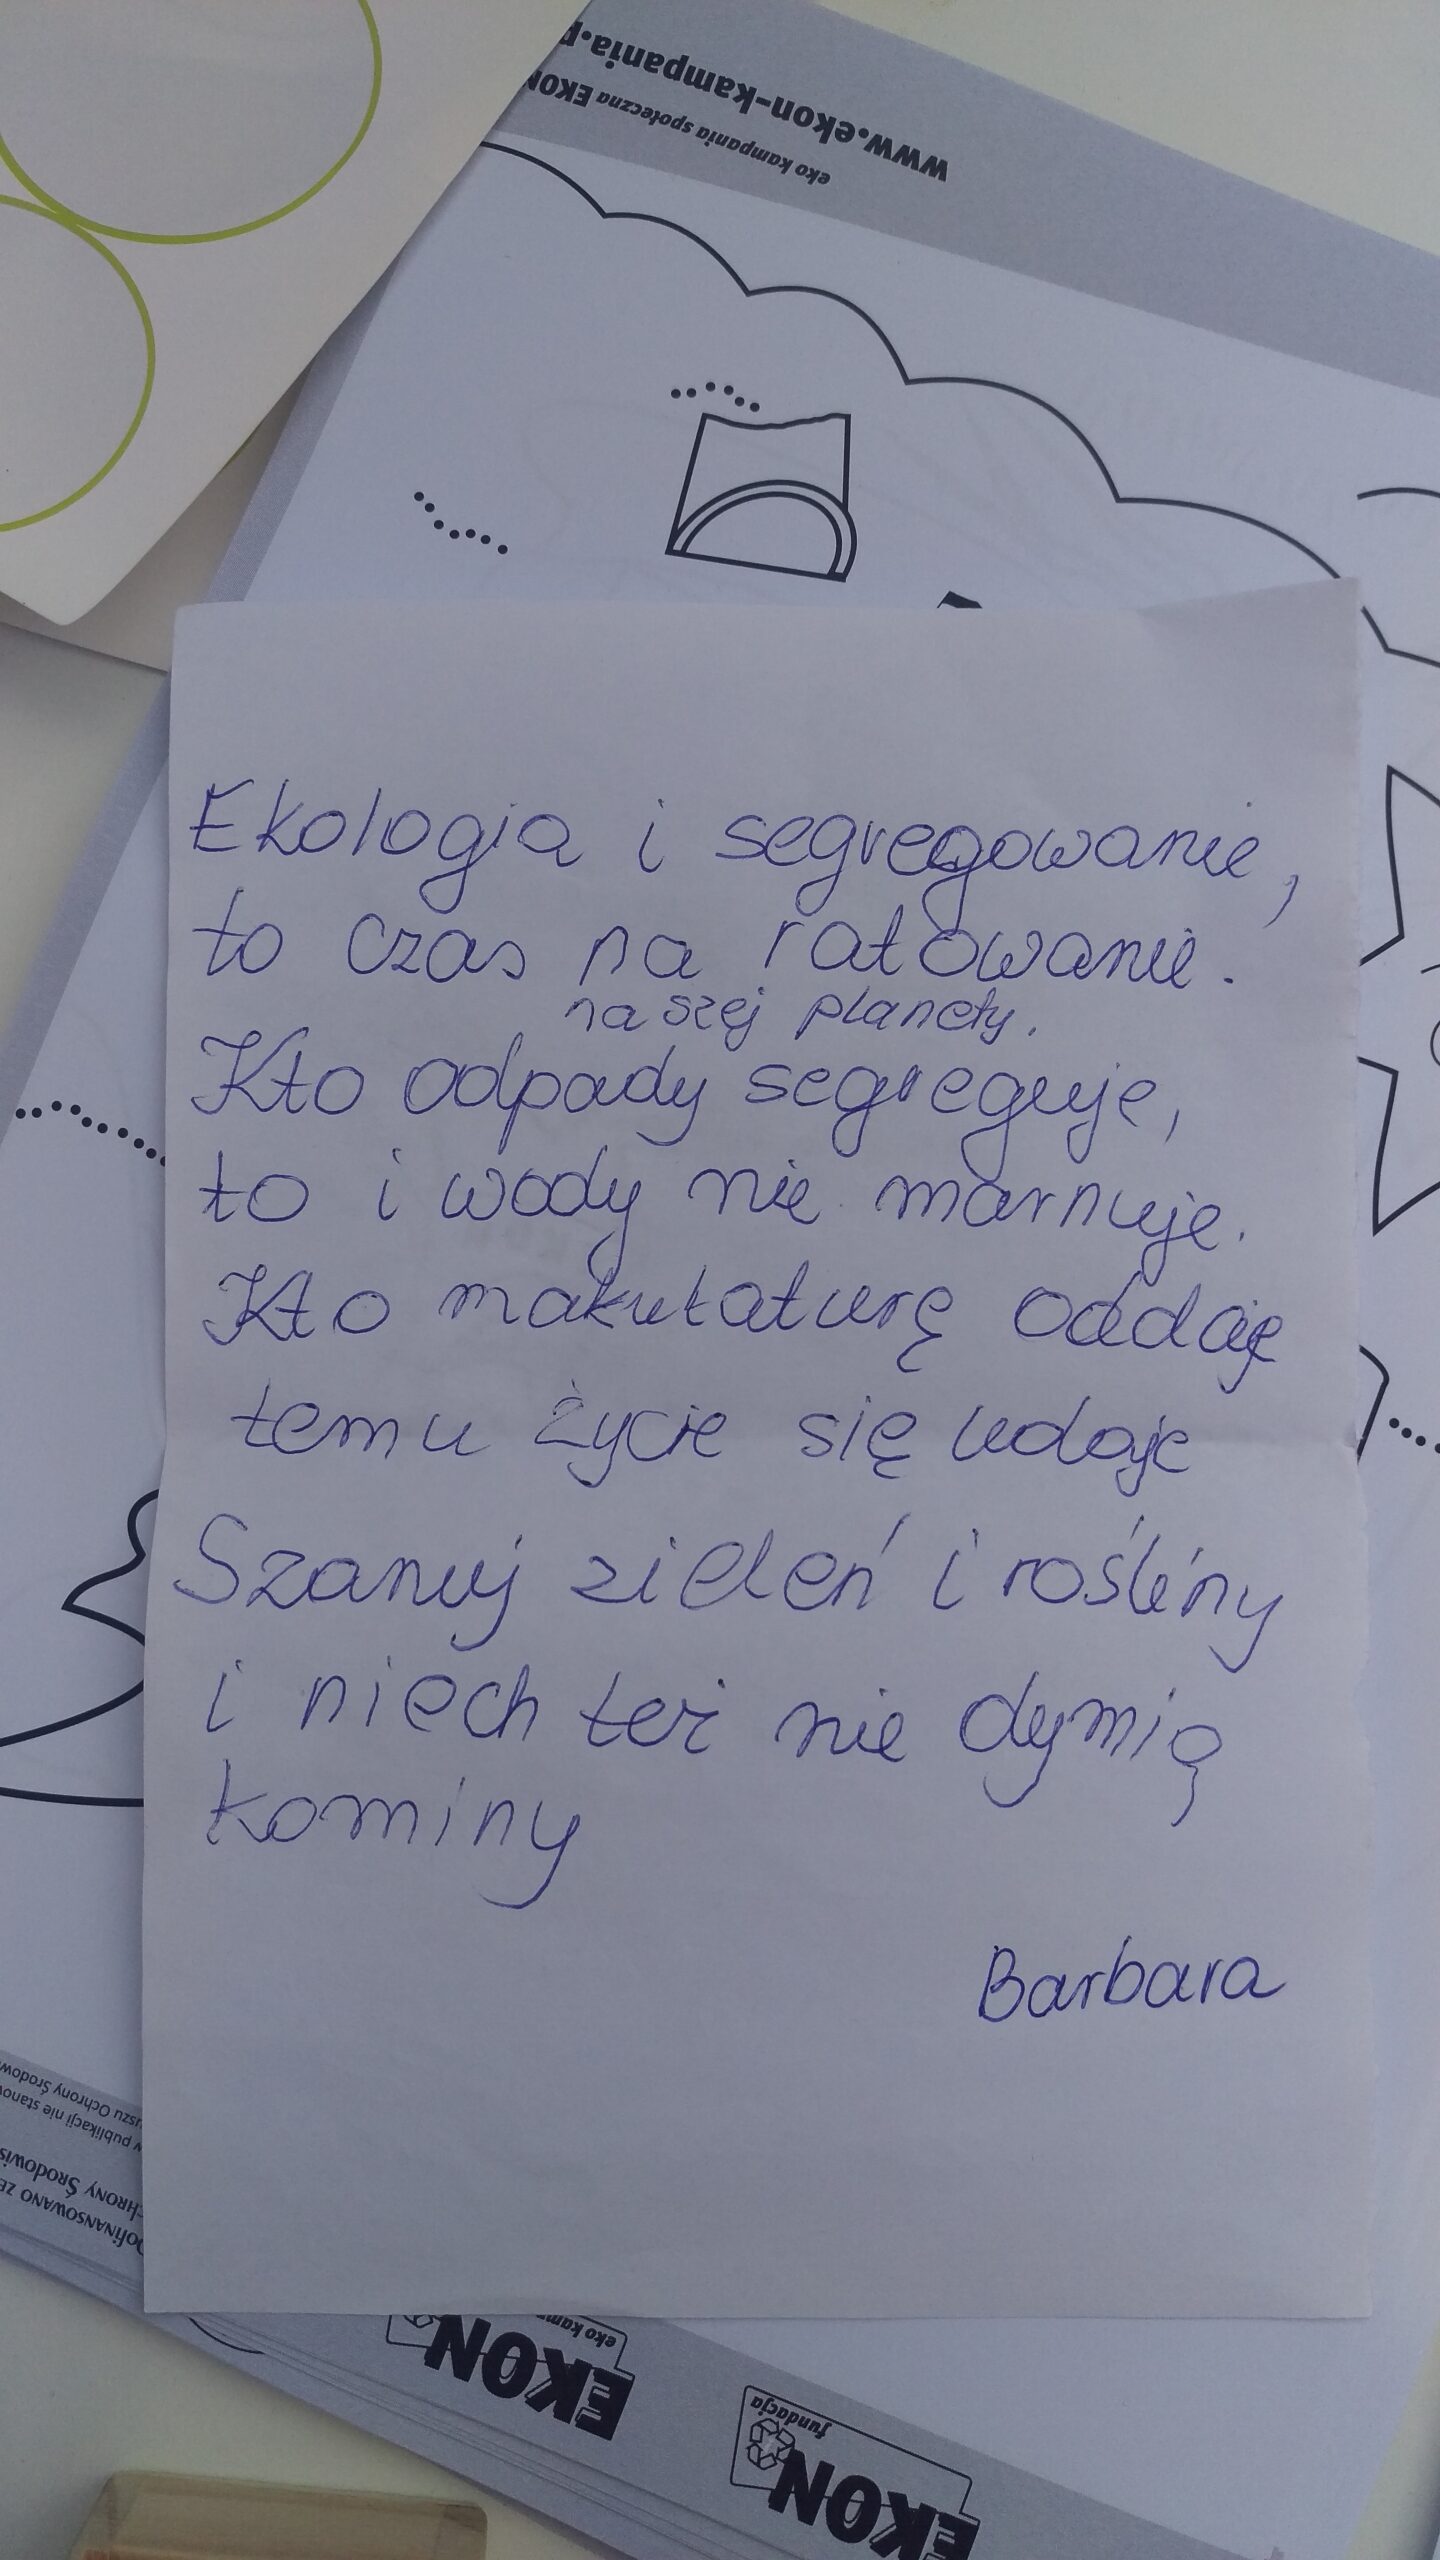 www.ekon-kampania.p
eko kampania społeczna EKON
Ekologia i segregowanie,
to czas na ratowanie.
naszej planety.
Kto odpady segreguje,
to i wody nie marnuje.
Kto makutaturę oddaje
temu życie się udaje
Szanuj zieleń i rośliny
i niech też nie dymią
kominy
Barbara
uszu Ochrony Środow
w publikacji nie stanow
chrony Środowis
Dofinansowano ze
EKON
eko kam
EKON
fundacja